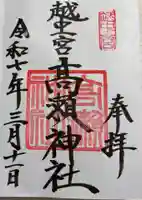 奉拝
越中一宮
高瀬神社
令和七年三月十一日